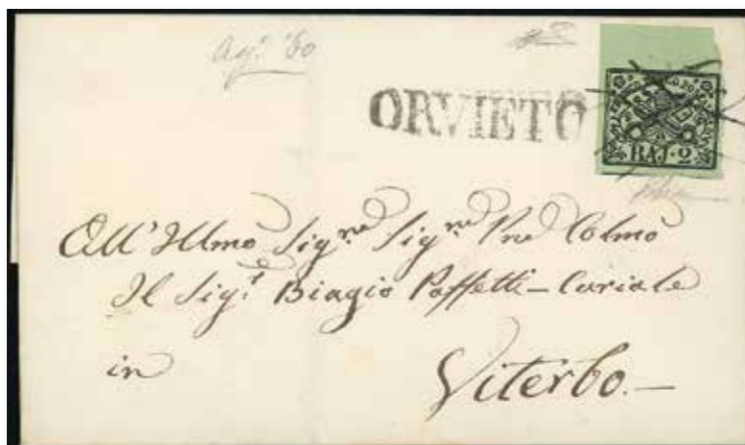 agt. '60
ORVIETO
BAJ. 2
All'Illmo Sigre Sigre Pne Colmo
Il Sigre Biagio Poffetti - Curiale
in Viterbo. -